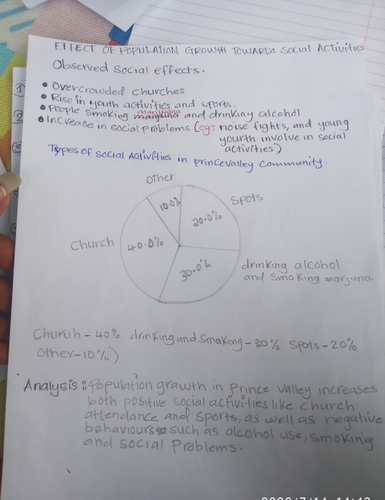 EFFECT OF POPULATION GROWTH TOWARDS SOCIAL ACTIVITIES
Observed Social effects.
• Overcrowded churches
• Rise in youth activities and sports.
• People smoking and drinking alcohol
• Increase in social problems (eg: noise fights, and young
yourth involve in social
activities)
Types of social Activities in prince valley community.
Other
Spots
10.0%
20.0%
Church
40.0%
30.0%
drinking alcohol
and smoking marjuna
Church - 40% drinking and smoking - 30% spots - 20%
Other - 10%)
Analysis: Population growth in Prince Valley increases
both positive social activities like church
attendance and sports, as well as negative
behaviours such as alcohol use, smoking
and social problems.